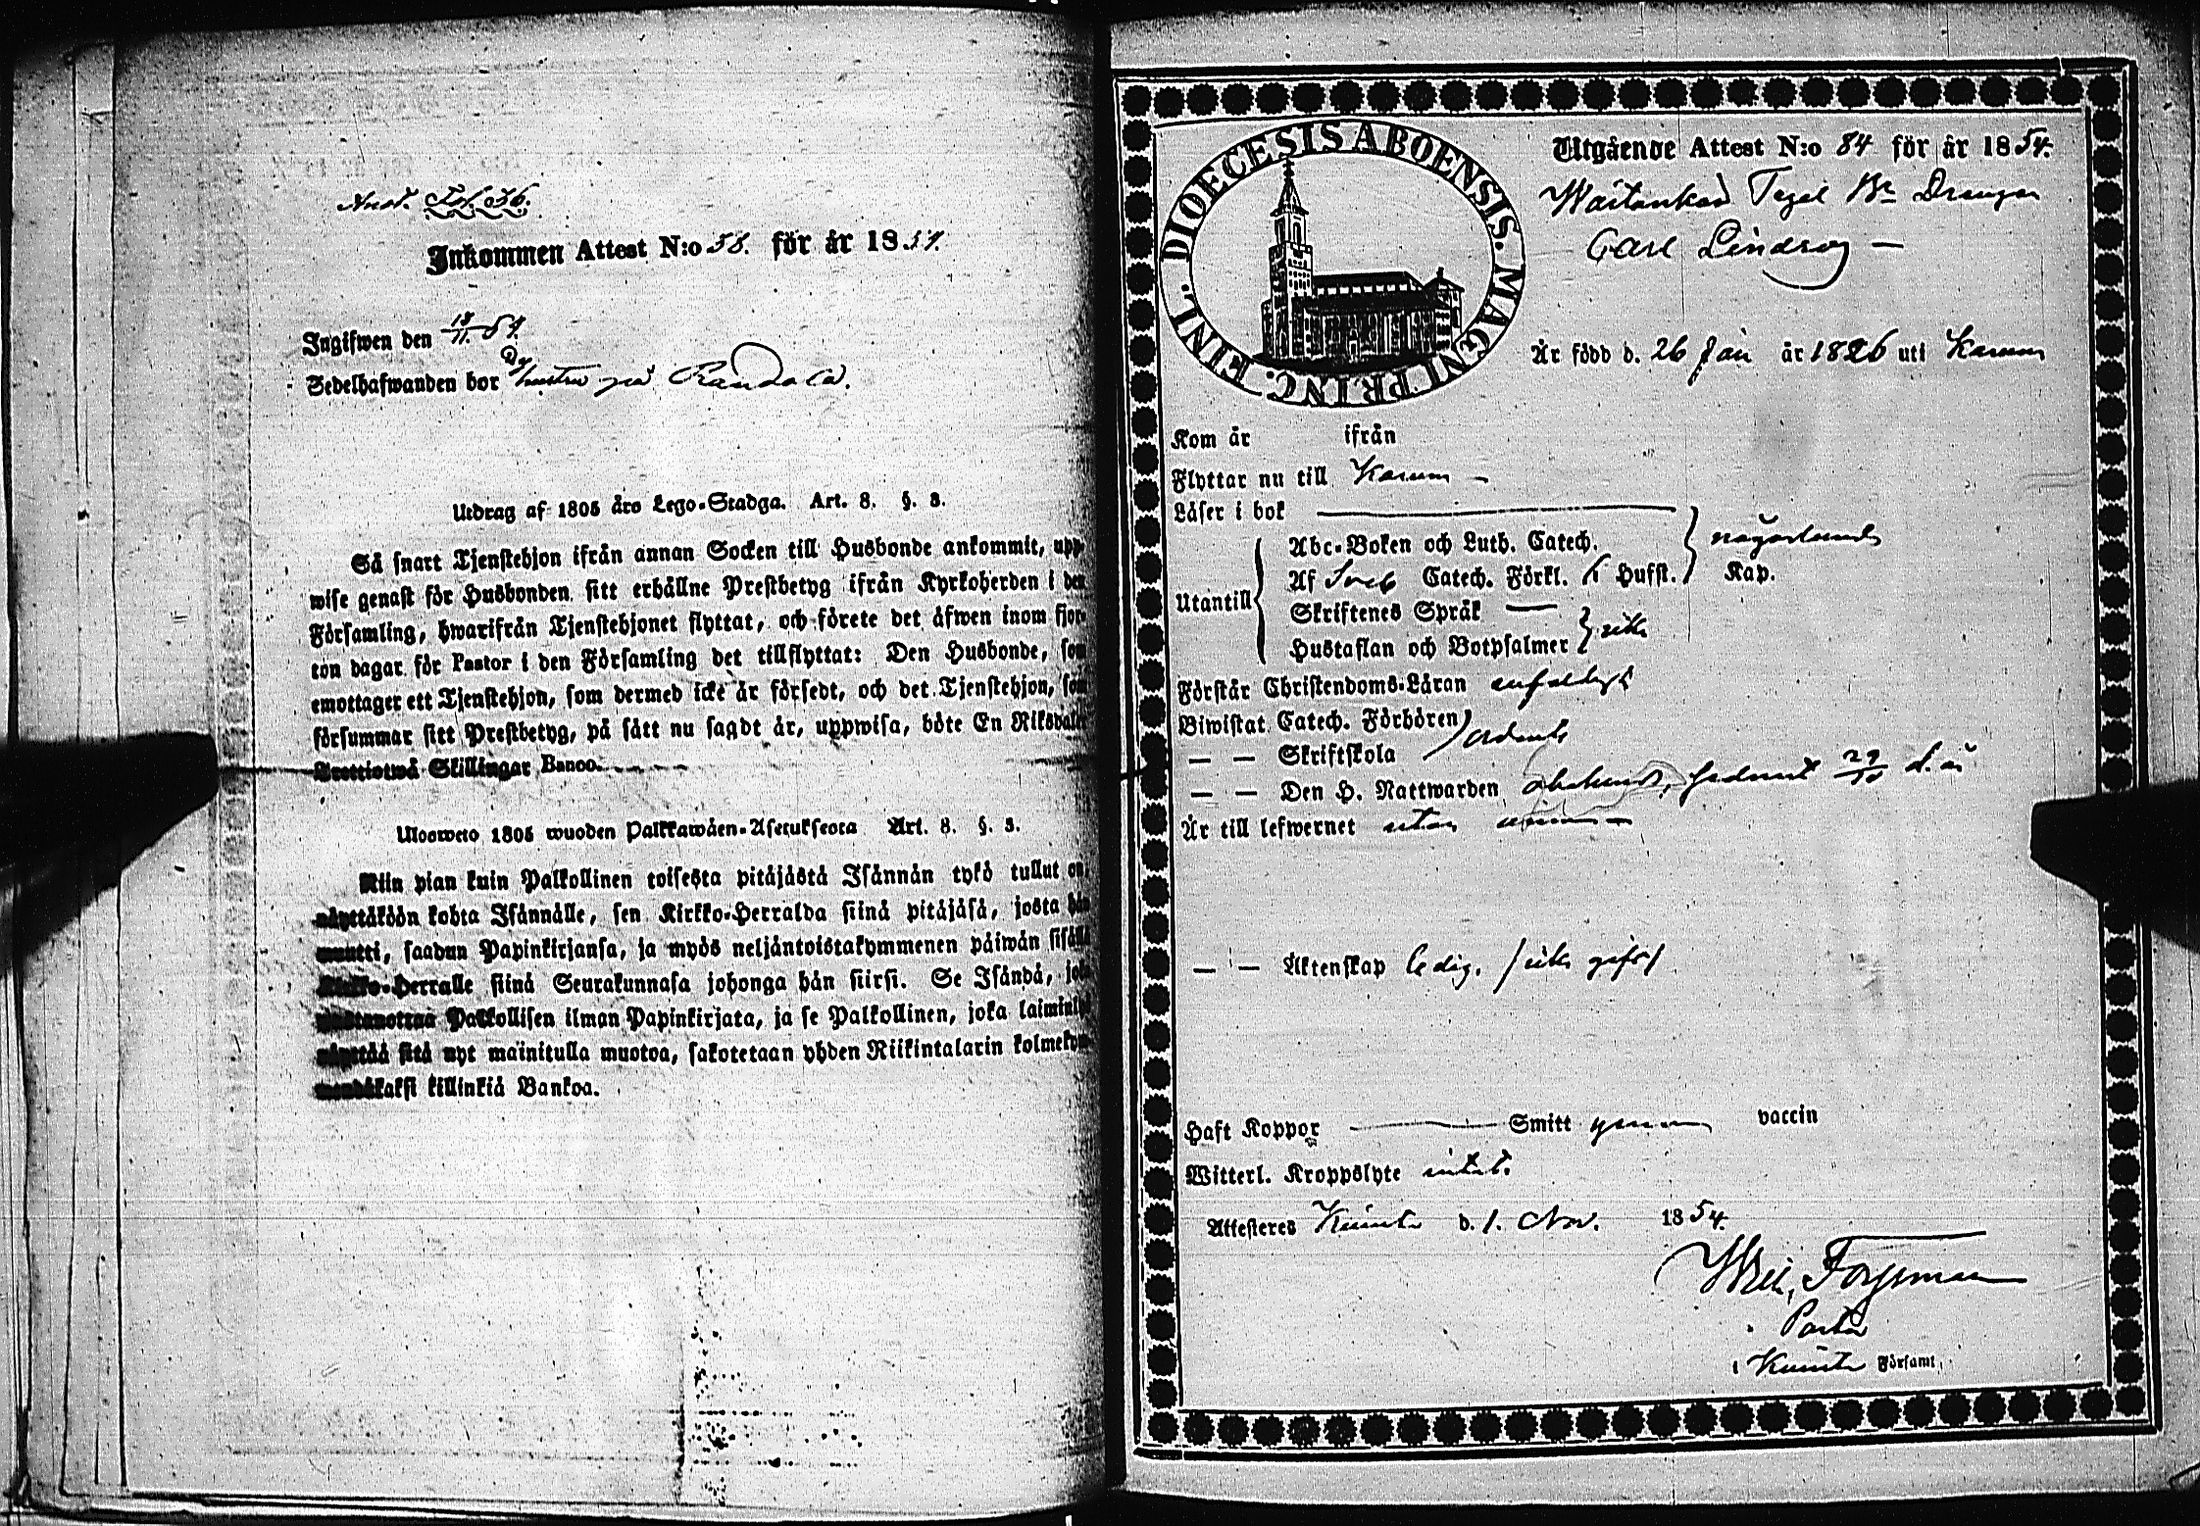 Anot. Fol. 36.
Inkommen Attest N:o 58. för år 1854.
Ingifwen den 18/11 54.
Sedelhafwanden bor på Randala.
Utdrag af 1805 års Lego-Stadga. Art. 8. §. 3.
Så snart Tjenstehjon ifrån annan Socken till Husbonde ankommit, upp-
wise genast för Husbonden sitt erhållne Prestbetyg ifrån Kyrkoherden i den
Församling, hwarifrån Tjenstehjonet flyttat, och förete det äfwen inom fjor-
ton dagar för Pastor i den Församling det tillflyttat: Den Husbonde, som
emottager ett Tjenstehjon, som dermed icke är försedt, och det Tjenstehjon, som
försummar sitt Prestbetyg, på sätt nu sagdt är, uppwisa, böte En Riksdaler
Trettiotwå Skillingar Banco.
Ulosweto 1805 wuoden Palkkawäen-Asetuksesta Art. 8. §. 3.
Niin pian kuin Palkollinen toisesta pitäjästä Isännän tykö tullut on,
näyttäköön kohta Isännälle, sen Kirkko-Herralda siinä pitäjäsä, josta hän
muutti, saadun Papinkirjansa, ja myös neljäntoistakymmenen päiwän sisällä
Kirkko-Herralle siinä Seurakunnasa johonga hän siirsi. Se Isändä, joka
wastanottaa Palkollisen ilman Papinkirjata, ja se Palkollinen, joka laiminlyö
näyttää sitä nyt mainitulla muotoa, sakotetaan yhden Riikintalarin kolmekym-
mendäkaksi killinkiä Bankoa.
DIOECESIS ABOENSIS. MAGNI PRINC. FINL.
Utgående Attest N:o 84 för år 1854.
Tegel Br Drengen
Carl Lindroy
Är född d. 26 Jan år 1826 uti Karuna
Kom år ifrån
Flyttar nu till Karuna
Läser i bok
Abc-Boken och Luth. Catech. någorlunda
Utantill Af Sveb Catech. Förkl. Hufst. Kap.
Skriftenes Språk
Hustaflan och Botpsalmer icke
Förstår Christendoms-Läran enfaldigt
Biwistat Catech. Förhören
— — Skriftskola ordent.
— — Den H. Nattwarden d. å
Är till lefwernet utan
— — Äktenskap ledig. /icke gift/
Haft Koppor Smitt genom vaccin
Witterl. Kroppslyte intet.
Attesteres Kimito d. 1. Nov. 1854.
Forssman
Pastor
i Kimito Församl.